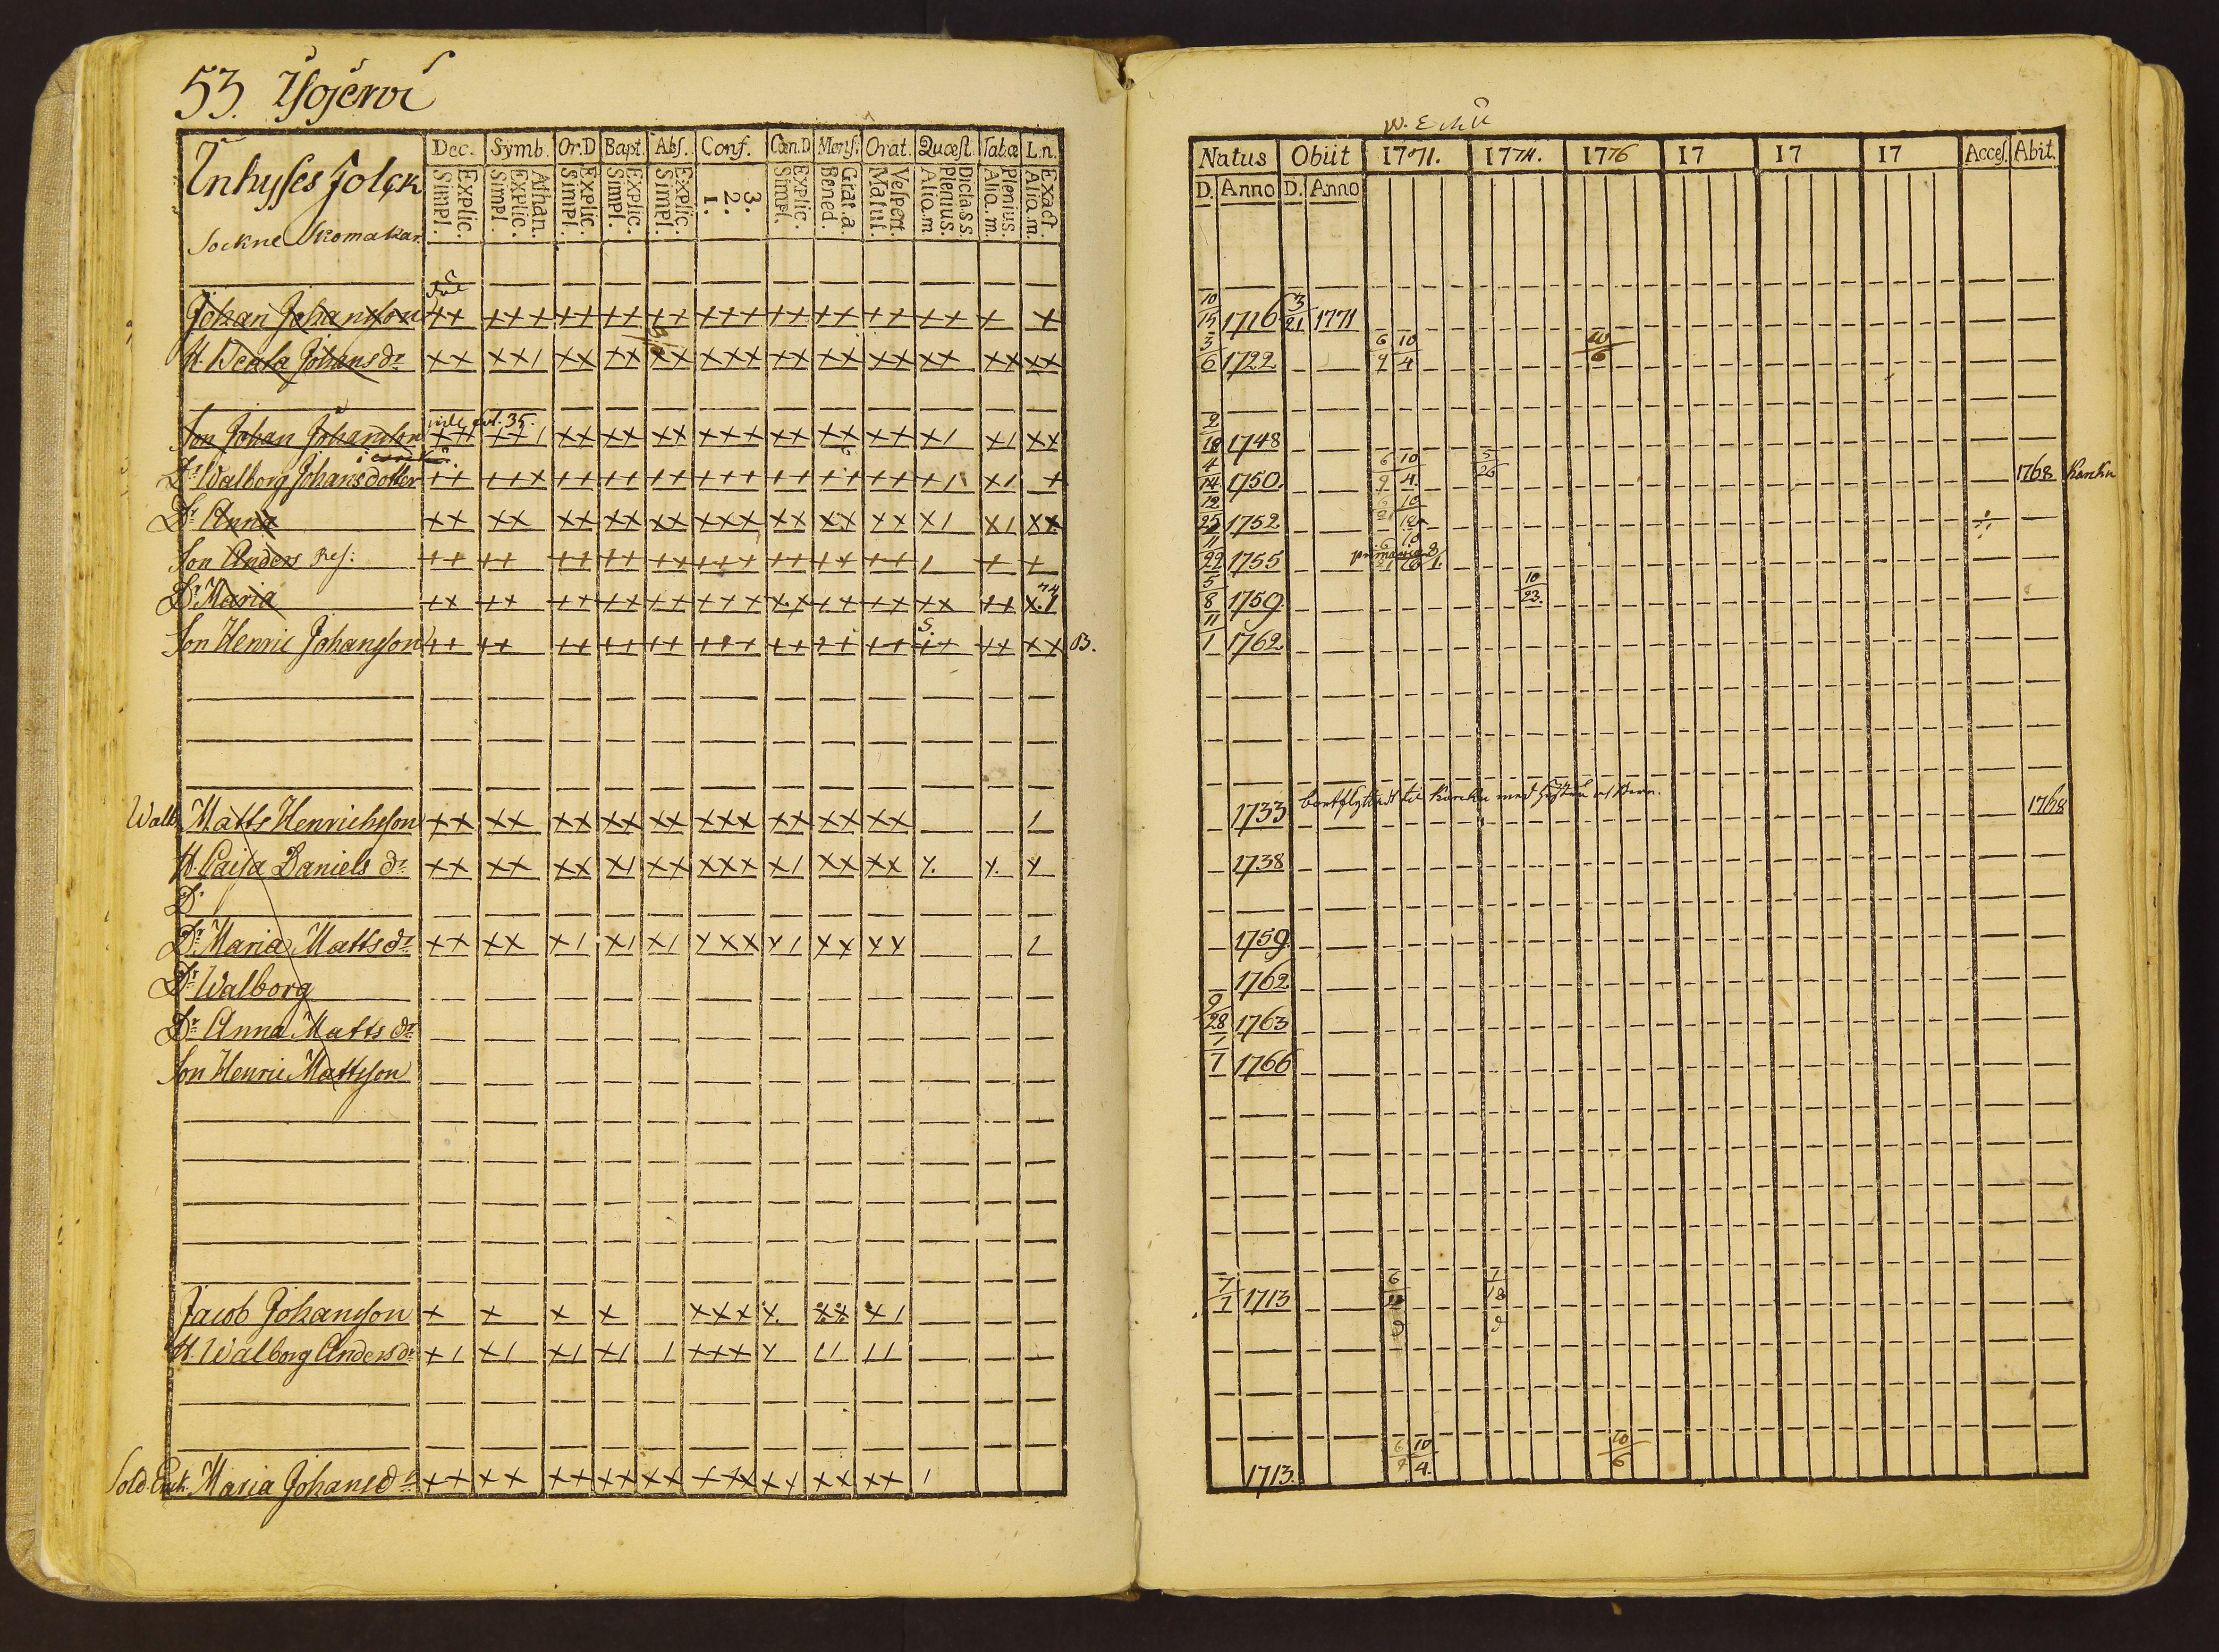 53. Isojerwi
Inhyses Folck
Sockne Skomakar
Dec. Symb. Or.D Bapt. Abs. Conf. Cœn.D Mens. Orat. Quæst. Tab.œ L.n.
Explic. Simpl. Athan. Explic. Simpl. Explic. Simpl. Explic. Simpl. Explic. Simpl. 3. 2. 1. Explic. Simpl. Grat.a. Bened. Vespert. Matut. Dicta s.s. Plenius. Aliq.m Plenius. Aliq.m. Exact. Aliq.m.
död
Johan Johansson ++ +++ ++ ++ ++ +++ ++ ++ ++ ++ + +
H. Beata Johans dr. ×× ××1 ×× ×× ×× ××× ×× ×× ×× ×× ×× ××
vide fol. 35.
Son Johan Johansson ×× ××1 ×× ×× ×× ××× ×× ×× ×× ×1 ×1 ××
Dr. Walborg Johansdotter ++ +++ ++ ++ ++ +++ ++ ++ ++ +1 ×1 +
Dr. Anna ×× ×× ×× ×× ×× ××× ×× ×× ×× ×1 ×1 ××
Son Anders Res: ++ ++ ++ ++ ++ +++ ++ ++ ++ 1 + +
Dr. Maria ++ ++ ++ ++ ++ +++ ×× ++ ++ ×× ++ ×1
Son Henric Johansson ++ ++ ++ ++ ++ +++ ++ ++ ++ ++ ++ ×× B.
Matts Henrichsson ×× ×× ×× ×× ×× ××× ×× ×× ×× 1
H. Caisa Daniels dr. ×× ×× ×× ×1 ×× ××× ×1 ×× ×× ×. ×. ×
Dr
Dr. Maria Matts dr. ×× ×× ×1 ×1 ×1 ××× ×1 ×× ×× 1
Dr. Walborg
Dr. Anna Matts dr.
Son Henric Mattsson
Jacob Johansson × × × × ××× ×. ×× ×1
H. Walborg Anders dr. ×1 ×1 ×1 ×1 1 ××× × 11 11
Sold. Enk. Maria Johans dr. ×× ×× ×× ×× ×× ××× ×× ×× ×× 1
Natus Obiit 1771. 1774. 1776 17 17 17 Acces. Abit.
D. Anno D. Anno
10/15 1716 3/21 1771
3/6 1722 6/9 10/4 10/6
2/18 1748
4/14 1750. 6/9 10/4. 5/26 1768 Karcku
12/25 1752
11/22 1755
5/8 1759. 10/23.
11/1 1762
1733 bortflyttadt til Karcku med hustru och barn. 1768
1738
1759.
1762
9/28 1763
1/7 1766
7/7 1713
1713. 6/9 10/4. 10/6